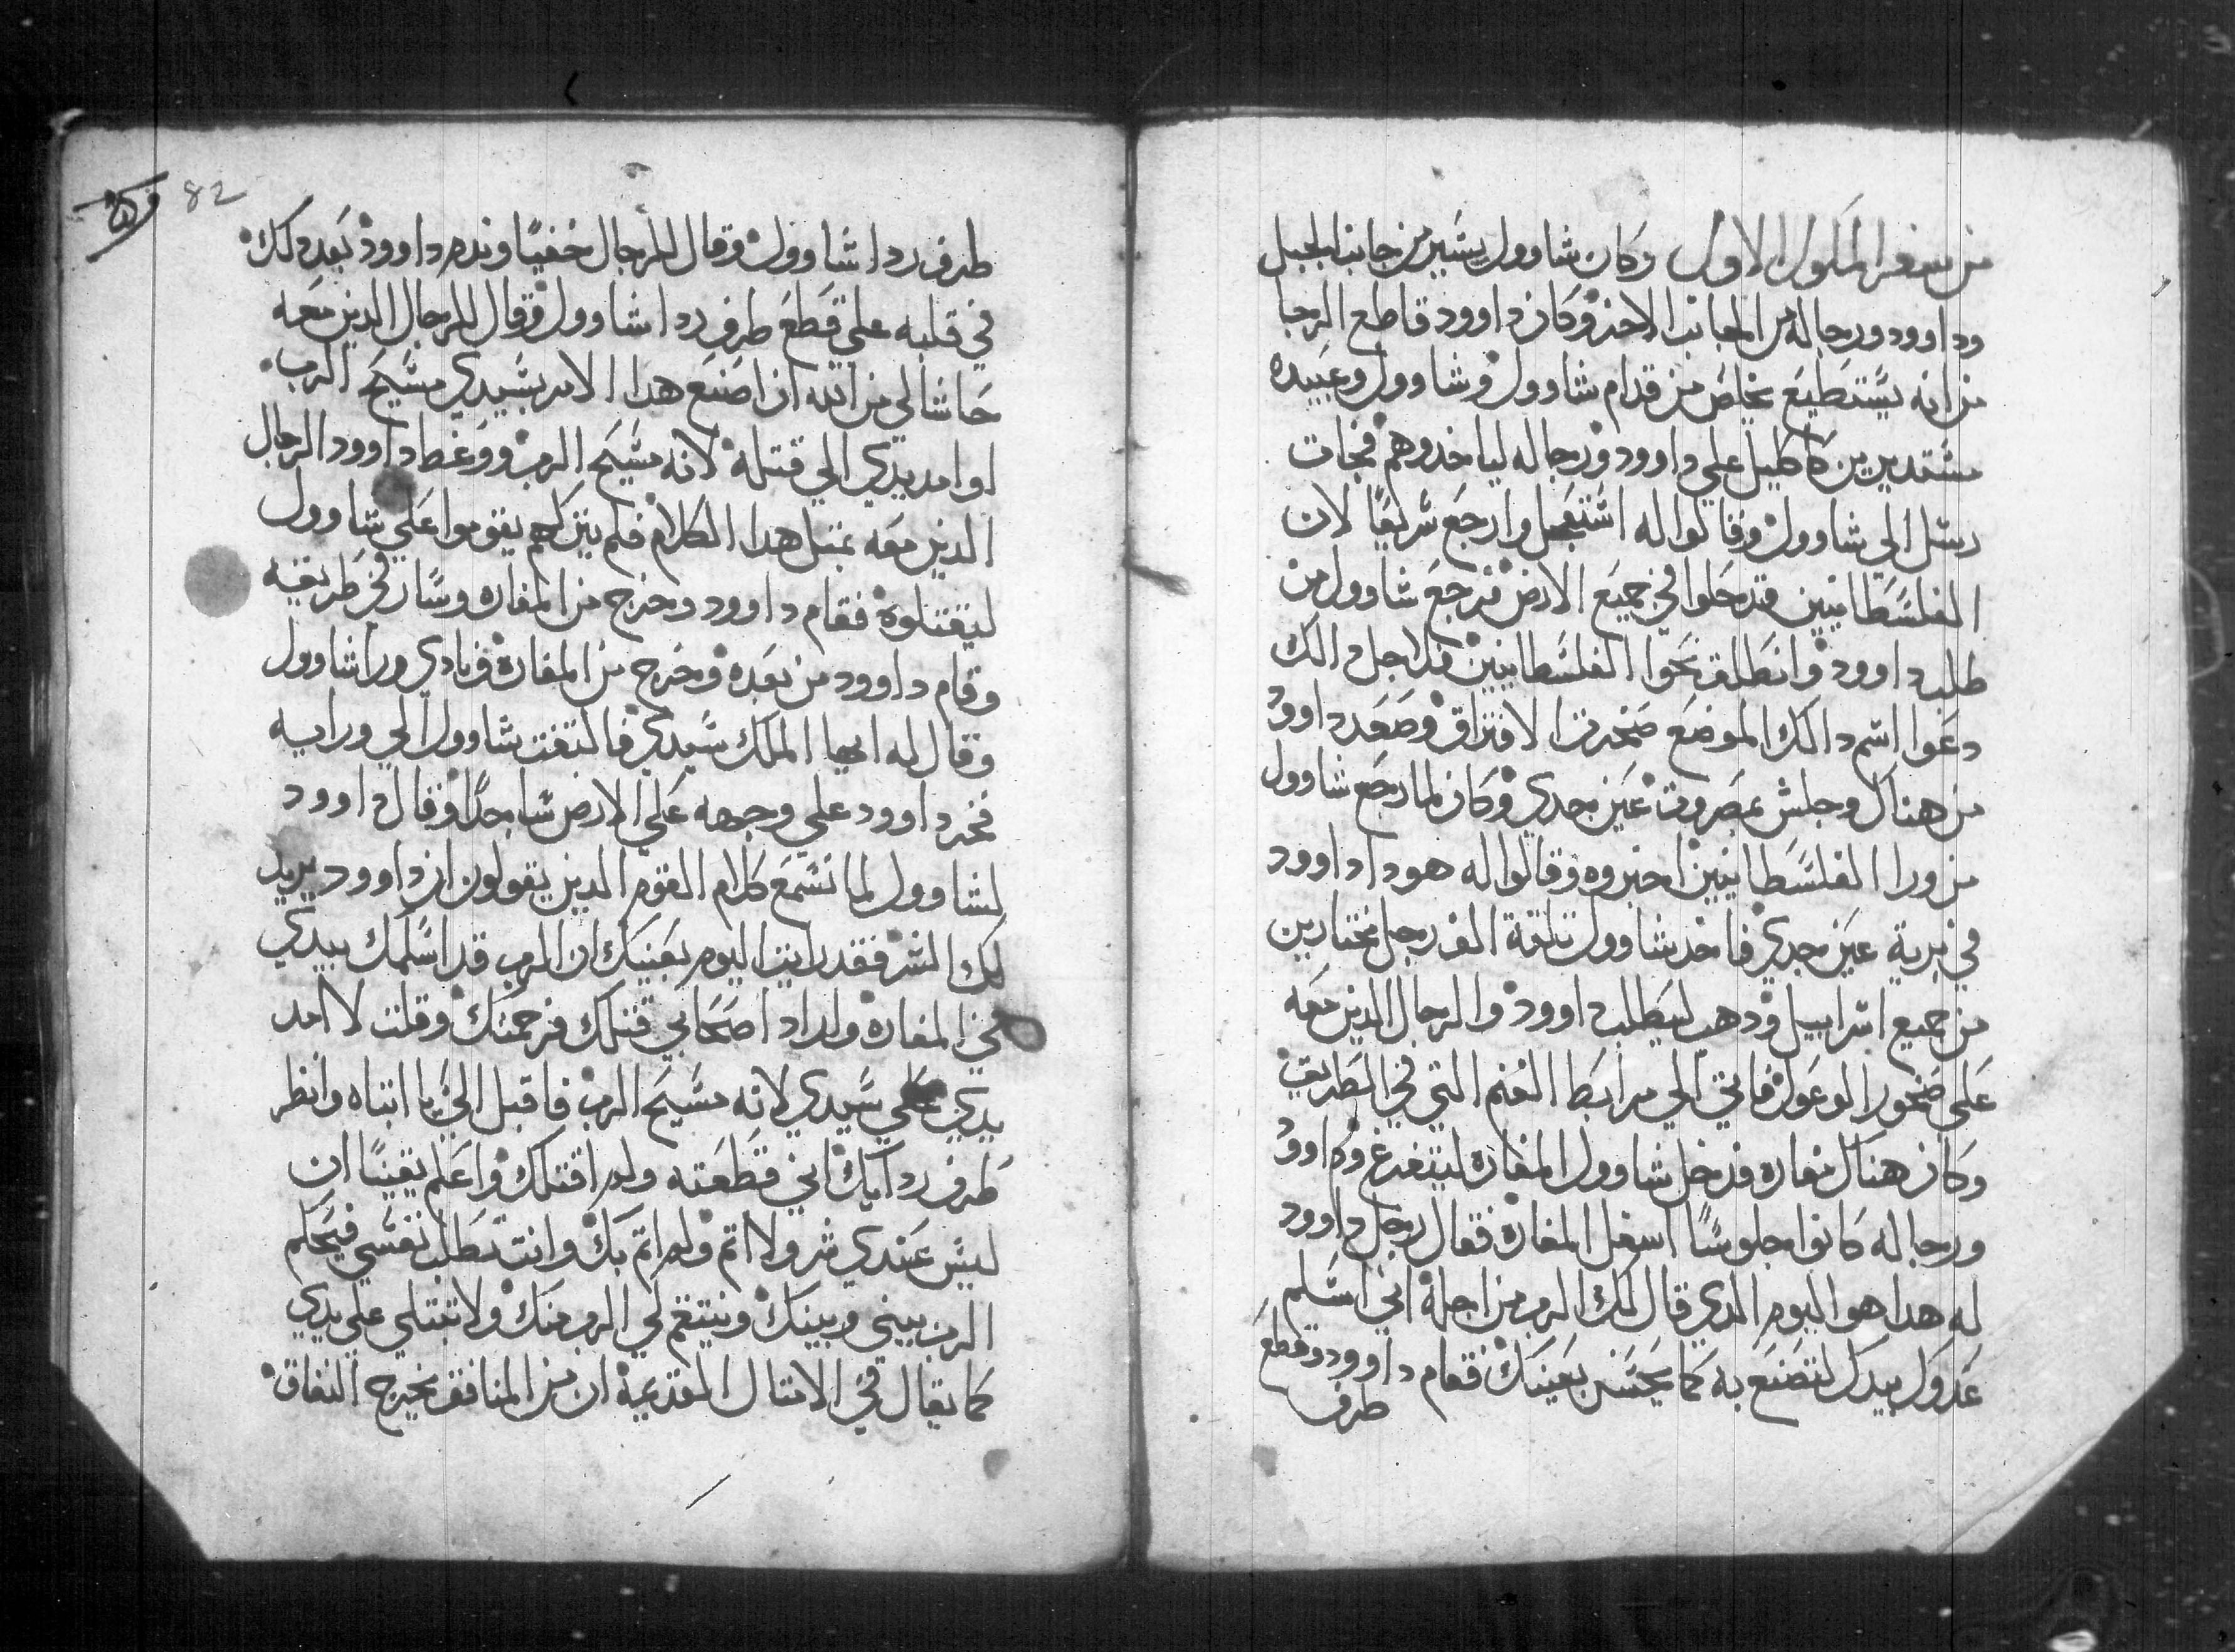 من سفر الملوك الاول وكان شاوول يسير من جانب الجبل
وداوود ورجاله من الجانب الاخر وكان داوود قاطع الرجا
من انه يستطيع يخلص من قدام شاوول وشاوول وعبيده
مستديرين كاكليل علي داوود ورجاله لياخدوهم فجات
رسل الي شاوول وقالوا له استعجل وارجع سريعًا لان
الفلسطانيين قد حلوا في جميع الارض فرجع شاوول من
طلب داوود وانطلق نحوا الفلسطانيين فلاجل دالك
دعوا اسم دالك الموضع صخرت الافتراق وصعد داوو
من هناك وجلس بمصروت عين جدي وكان لما رجع شاوول
من ورا الفلسطانيين اخبروه وقالوا له هودا داوود
في برية عين جدي فاخد شاوول تلتة الف رجل مختارين
من جميع اسراييل ودهب ليطلب داوود والرجال الدين معه
علي صخور الوعول فاتي الي مرابط الغنم التي في الطريق
وكان هناك مغاره فدخل شاوول المغاره ليتفرغ وداوو
ورجاله كانوا جلوسًا اسفل المغارة فقال رجل داوود
له هدا هو اليوم الدي قال لك الرب من اجلة اني اسلم
عدوك بيدك لتصنع به كما يحسن بعينك فقام داوود وقطع
طرف
82
طرف ردا شاوول وقال للرجال خفيًا وندم داوود بعد دلك
في قلبه علي قطع طرف ردا شاوول وقال للرجال الدين معه
حاشا لي من الله ان اصنع هدا الامر بسيدي مسيح الرب
او امد يدي الي قتلة لانه مسيح الرب ووعظ داوود الرجال
الدين معه بمتل هدا الكلام فلم يتركهم يقوموا علي شاوول
ليقتلوة فقام داوود وخرج من المغاره وسار في طريقه
وقام داوود من بعده وخرج من المغارة ونادي ورا شاوول
وقال له ايها الملك سيدي فالتفت شاوول الي ورايه
فخر داوود علي وجهه علي الارض ساجدًا وقال داوود
لشاوول لما تسمع كلام القوم الدين يقولون ان داوود يريد
لك الشر فقد رايت اليوم بعينك ان الرب قد اسلمك بيدي
في المغارة واراد اصحابي قتلك فرحمتك وقلت لا امد
يدي علي سيدي لانه مسيح الرب فاقبل الي يا ابتاه وانظر
طرف ردايك اني قطعته ولم اقتلك واعلم يقينًا ان
ليس عندي شر ولا اتم ولم اتم بك وانت تطلب نفسي فيحكم
الرب بيني وبينك وينتقم لي الرب منك ولا تبتلي علي يدي
كما يقال في الامتال القديمة ان من المنافق يخرج النفاق